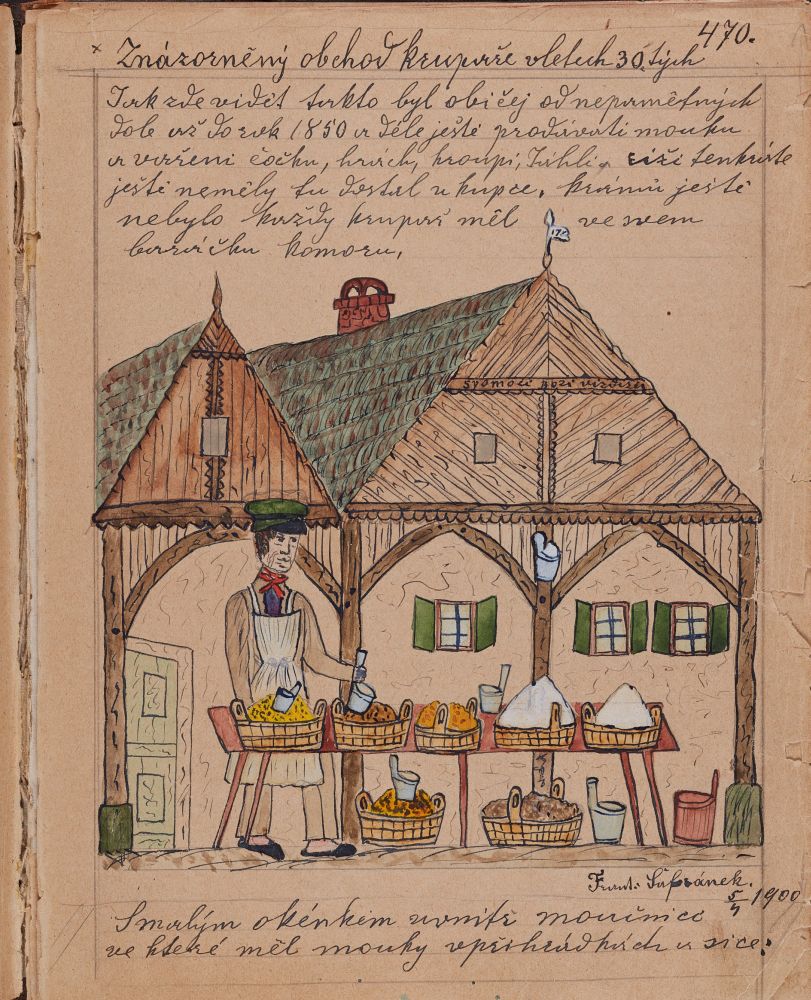 470.
× Znázorněný obchod krupaře vletech 30.tých
Jak zde vidět takto byl običej od nepamětných
dob až do rok 1850 a déle ještě prodávati mouku
a vaření čočku, hrách, kroupi, Jáhli, riži tenkráte
ještě neměly tu dostal u kupce. krámů ještě
nebylo každy krupař měl ve svem
baráčku komoru,
spomocí boží
Frant: Šafránek.
5/4 1900
Smalým okénkem uvnitř moučnice
ve které měl mouky vpřihrádkách a sice: